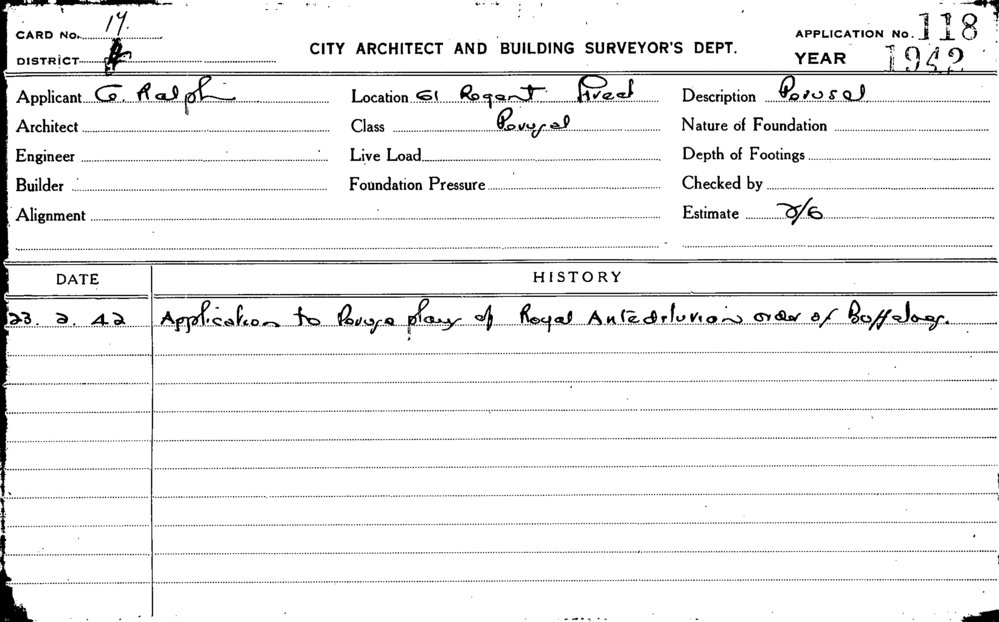 CARD No. 14.
APPLICATION No. 118
CITY ARCHITECT AND BUILDING SURVEYOR'S DEPT.
DISTRICT
YEAR 1942
Applicant G. Ralph Location 61 Regent Street Description Perusal
Architect Class Perusal Nature of Foundation
Engineer Live Load Depth of Footings
Builder Foundation Pressure Checked by
Alignment Estimate 2/6
DATE HISTORY
23. 2. 42 Application to Peruse plans of Royal Antediluvian order of Buffaloes.